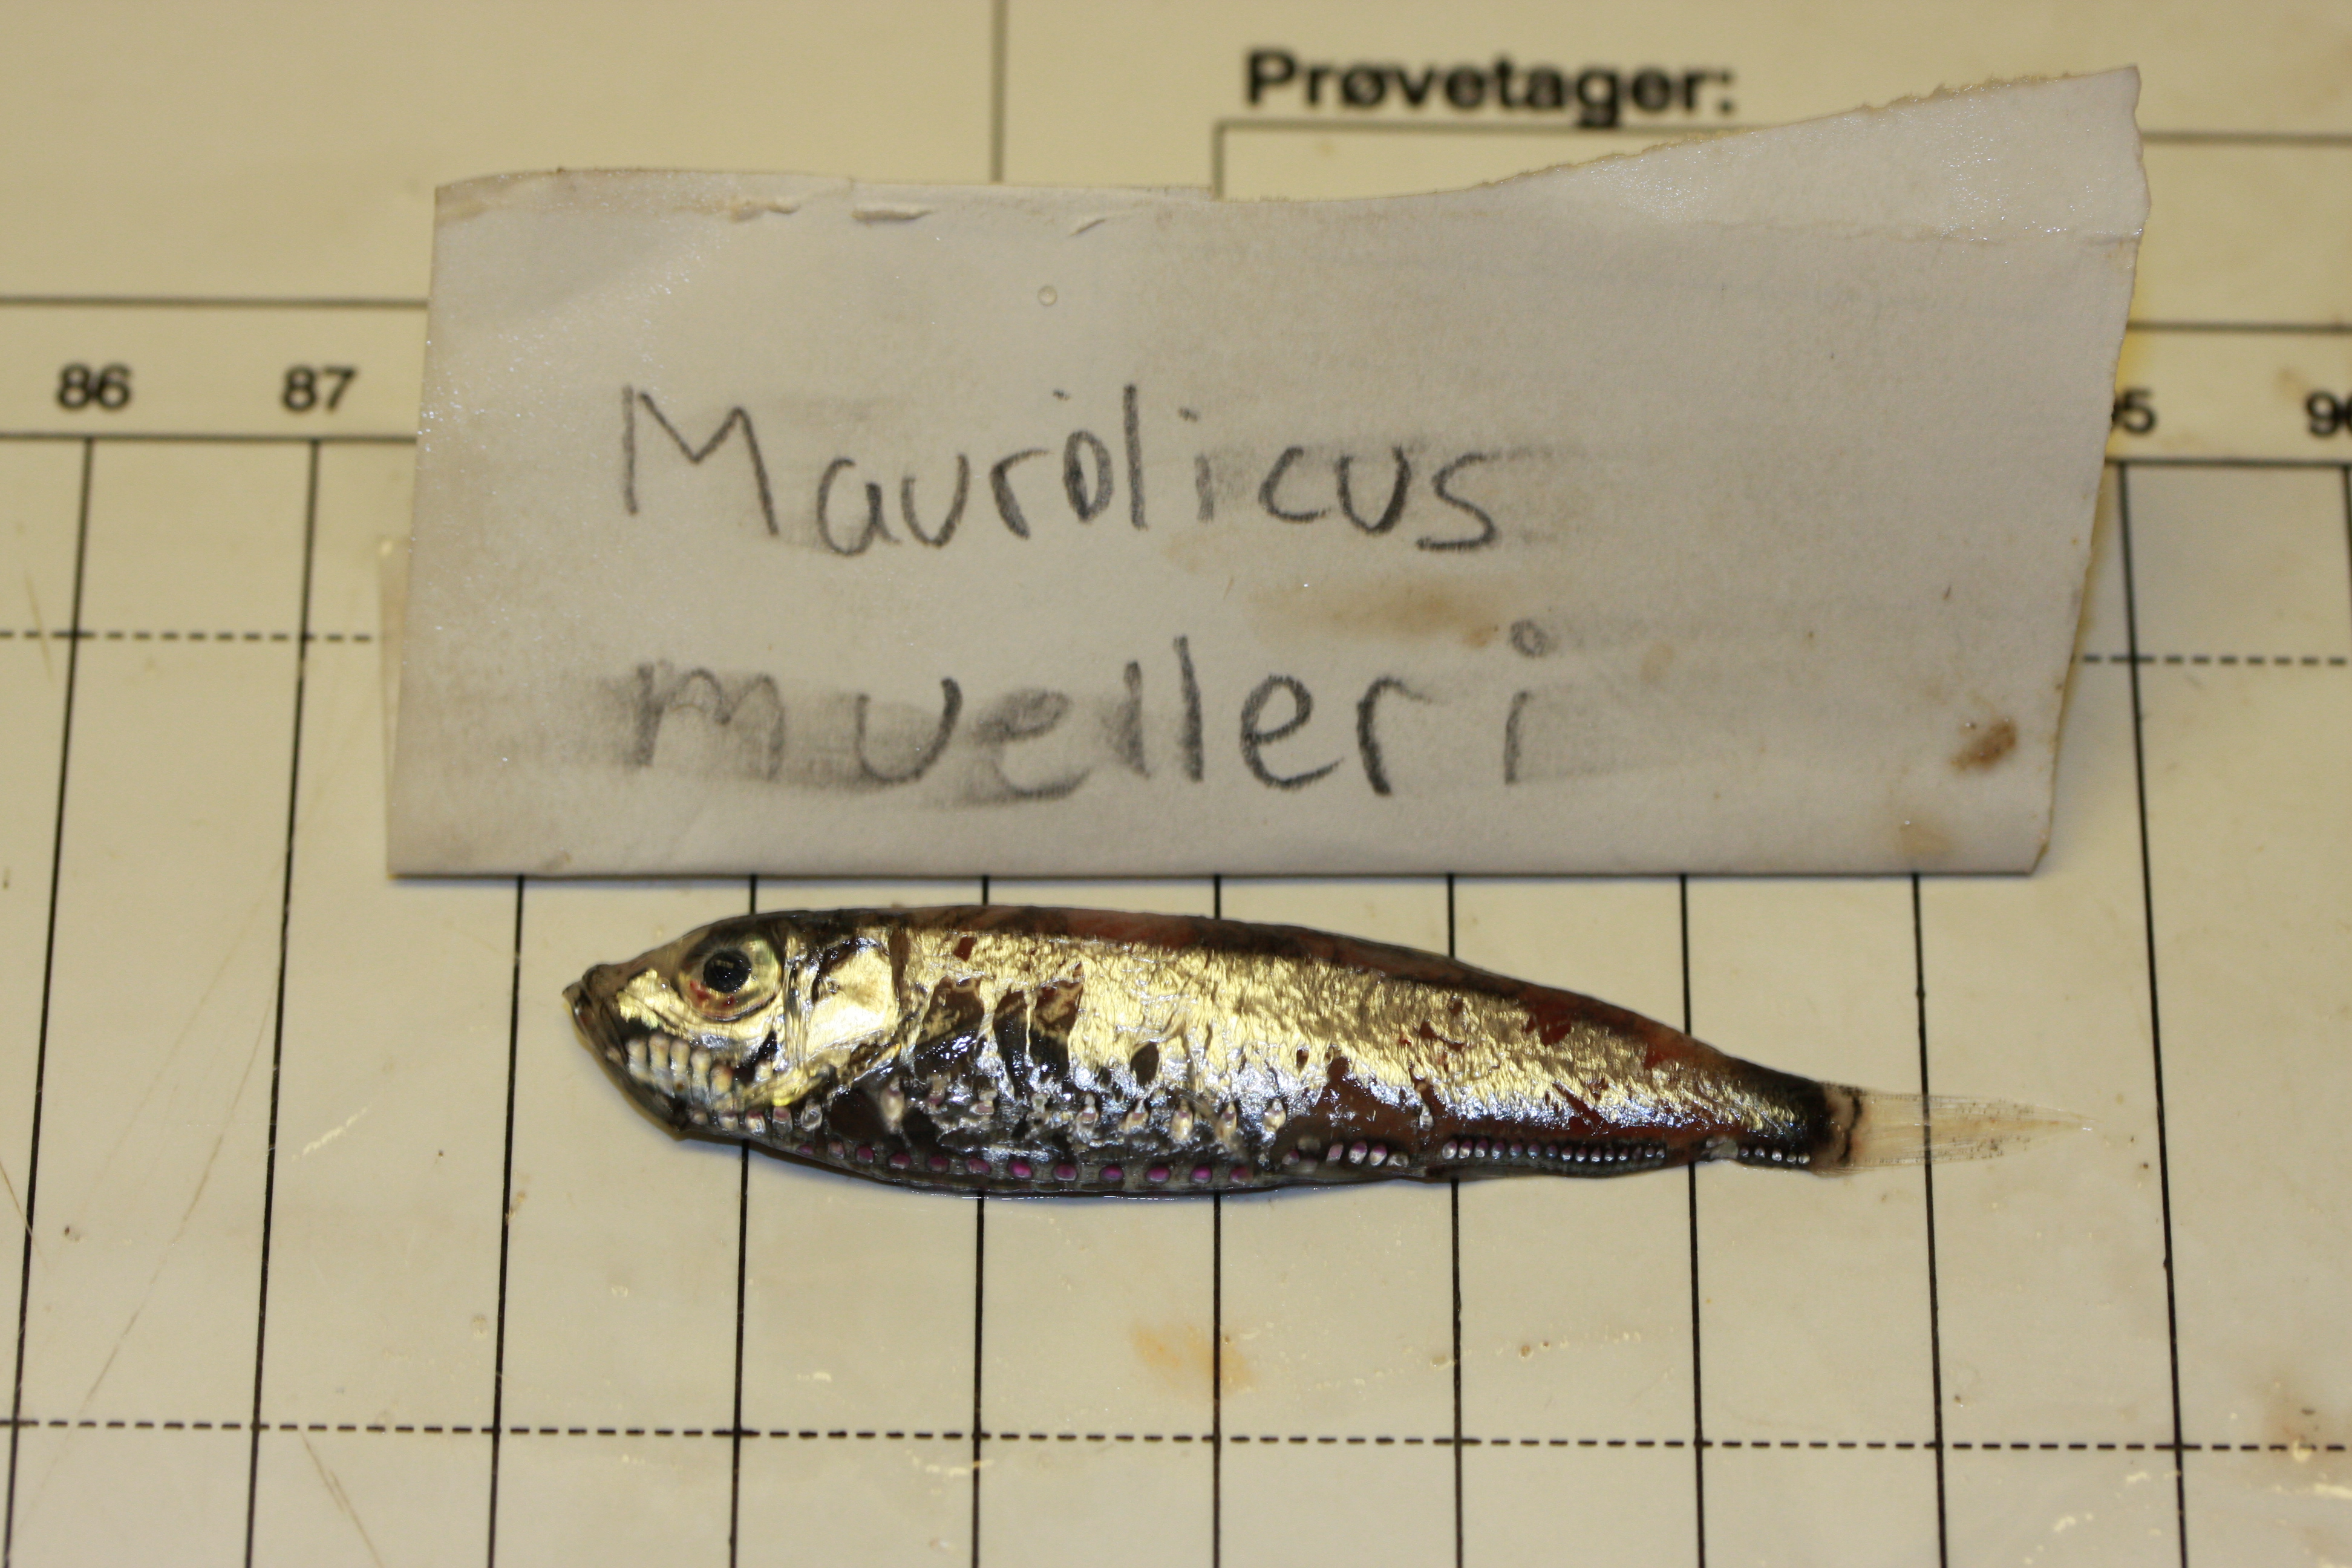 Prøvetager:
86 87 95 96
Maurolicus
muelleri